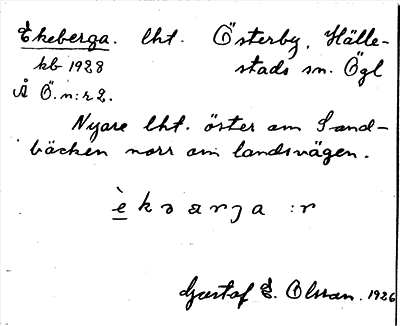 Ekeberga. lht. Österby, Hälle-
kb 1928 stads sn. Ögl
Å Ö. n:r 2.
Nyare lht. öster om Sand-
bäcken norr om landsvägen.
è k ɔ a r ɟ a :r
Gustaf E. Olsson. 1926